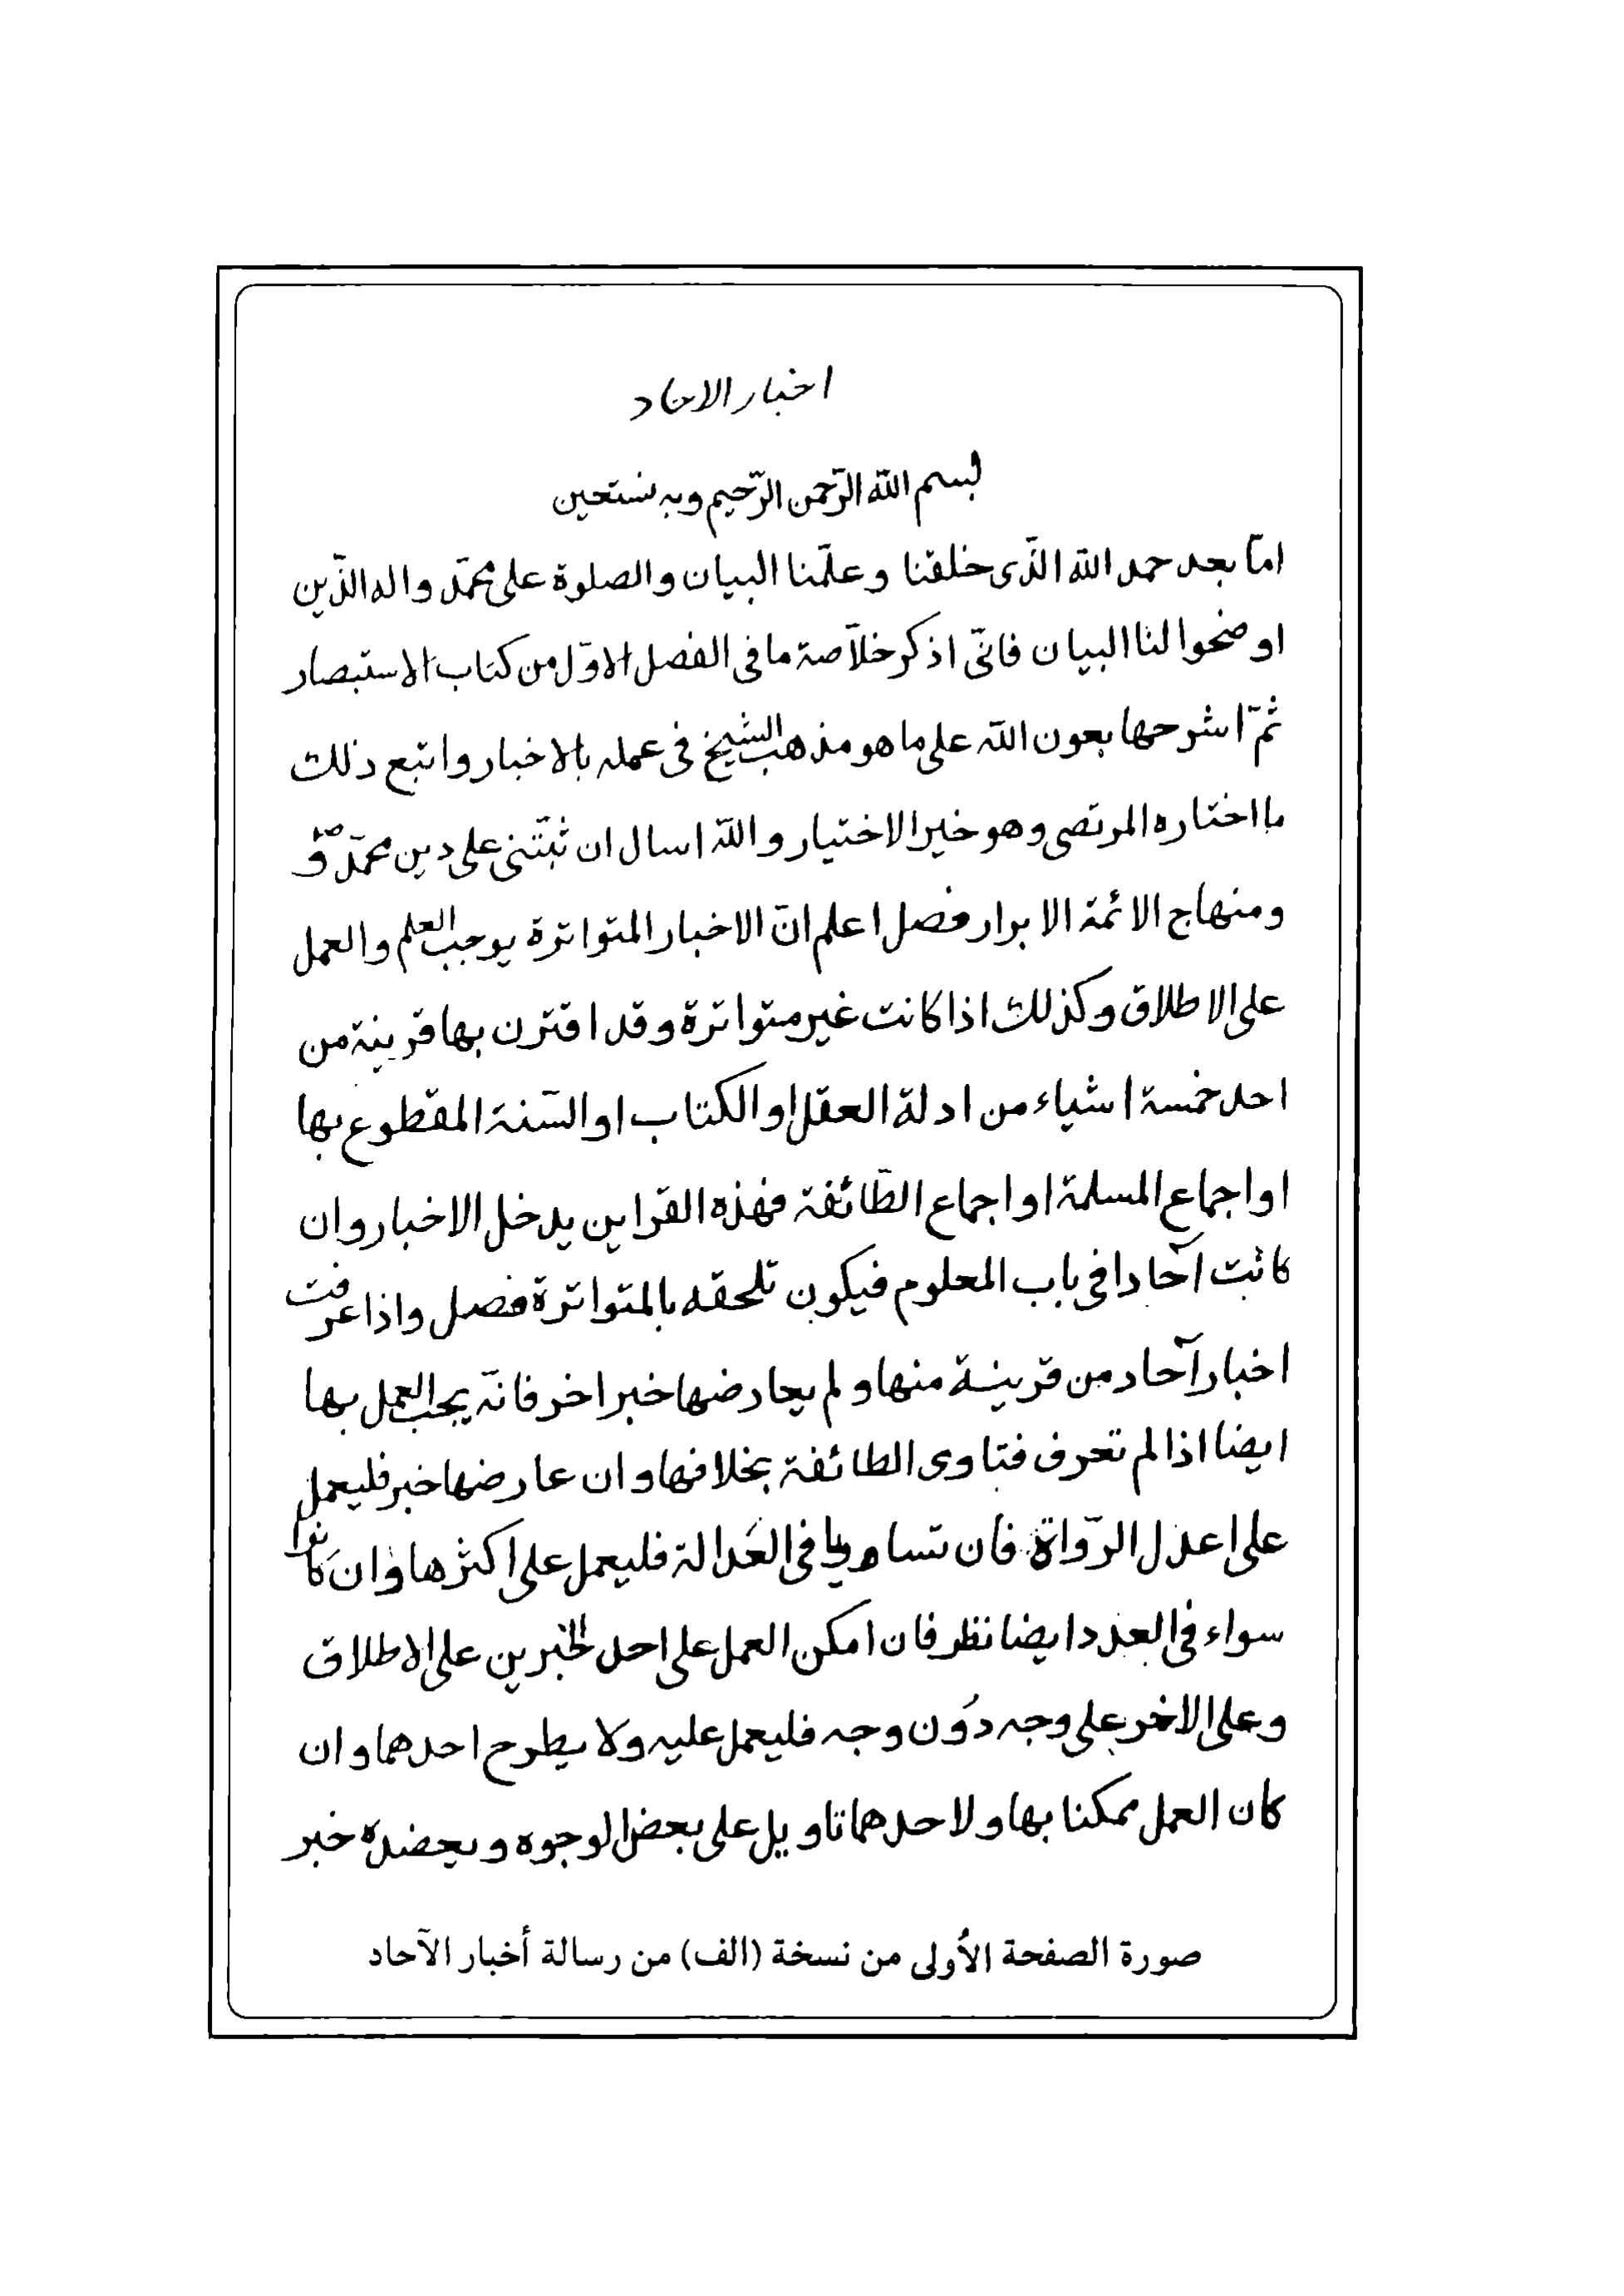 اخبار الاحاد
بسم الله الرّحمن الرّحيم وبه نستعين
امّا بعد حمد الله الذّى خلقنا وعلّمنا البيان والصلوة على محمّد واله الذّين
اوضحوا لنا البيان فانّى اذكر خلاصة ما فى الفصل الاوّل من كتاب الاستبصار
ثمّ اشرحها بعون الله على ما هو مذهب الشيخ فى عمله بالاخبار واتبع ذلك
ما اختاره المرتضى وهو خير الاختيار والله اسال ان ثبّتنى على دين محمّد ص و
ومنهاج الائمة الابرار فصل اعلم انّ الاخبار المتواترة يوجب العلم والعمل
على الاطلاق وكذلك اذا كانت غير متواترة وقد اقترن بها قرينة من
احد خمسة اشياء من ادلة العقل او الكتاب او السّنة المقطوع بها
او اجماع المسلمة او اجماع الطّائفة فهذه القراين يدخل الاخبار وان
كانت آحادا فى باب المعلوم فيكون تلحقه بالمتواترة فصل واذا عرفت
اخبار آحاد من قرينة منها ولم يعارضها خبر اخر فانّه يجب العمل بها
ايضا اذا لم تعرف فتاوى الطائفة بخلافها وان عارضها خبر فليعمل
على اعدل الرّواة فان تساويا فى العدالة فليعمل على اكثرها وان كانوا
سواء فى العدد ايضا نظر فان امكن العمل على احد الخبرين على الاطلاق
وعلى الاخر على وجه دون وجه فليعمل عليه ولا يطرح احدهما وان
كان العمل ممكنا بها ولاحدهما تاويل على بعض الوجوه ويعضده خبر
صورة الصفحة الأولى من نسخة (الف) من رسالة أخبار الآحاد